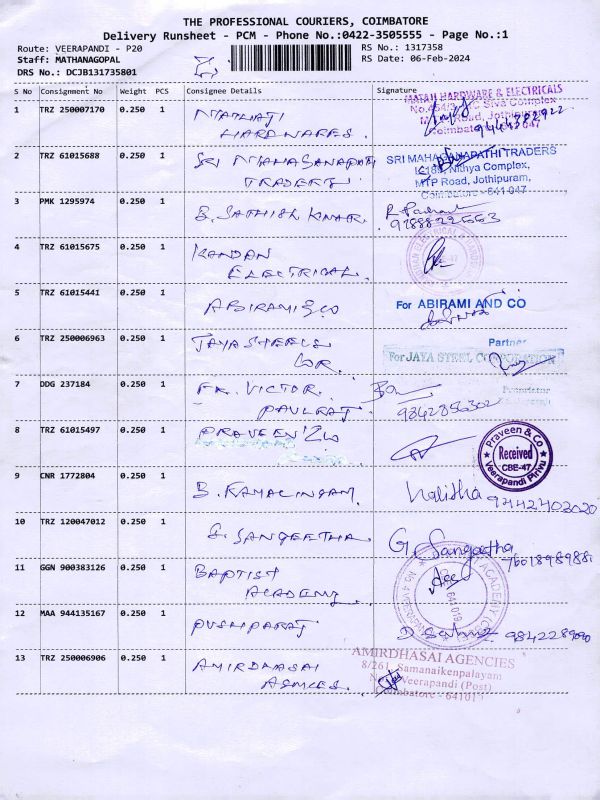 THE PROFESSIONAL COURIERS, COIMBATORE
Delivery Runsheet - PCM - Phone No.:0422-3505555 - Page No.:1
Route: VEERAPANDI - P20
RS No.: 1317358
Staff: MATHANAGOPAL
RS Date: 06-Feb-2024
DRS No.: DCJB131735801
S No Consignment No Weight PCS Consignee Details Signature
1 TRZ 250007170 0.250 1
HARDWARES.
MATAJI HARDWARE & ELECTRICALS
Siva Complex
Road, Jothipuram
Coimbatore 641 047
2 TRZ 61015688 0.250 1 SRI MAHAGANAPATHI
TRADERS
SRI MAHAGANAPATHI TRADERS
Nithya Complex,
MTP Road, Jothipuram,
Coimbatore - 641 047
3 PMK 1295974 0.250 1 B. SATHISH KUMAR.
4 TRZ 61015675 0.250 1 KANDAN
ELECTRICAL.
5 TRZ 61015441 0.250 1 ABIRAMI & CO
For ABIRAMI AND CO
Partner
6 TRZ 250006963 0.250 1 JAYA STEELS
For JAYA STEEL CORPORATION
Proprietor
7 DDG 237184 0.250 1 FR. VICTOR.
PAULRAJ.
9842856302
8 TRZ 61015497 0.250 1 PRAVEEN & CO
Praveen & Co
Received
CBE-47
Veerapandi Pirivu
9 CNR 1772804 0.250 1 B. RAMALINGAM.
Lalitha 9442402020
10 TRZ 120047012 0.250 1 G. SANGEETHA.
G. Sangeetha
11 GGN 900383126 0.250 1 BAPTIST
ACADEMY.
641 019
12 MAA 944135167 0.250 1 PUSHPARAJ
13 TRZ 250006906 0.250 1 AMIRDHASAI
AMIRDHASAI AGENCIES
8/261, Samanaikenpalayam
Veerapandi (Post)
Coimbatore - 641019